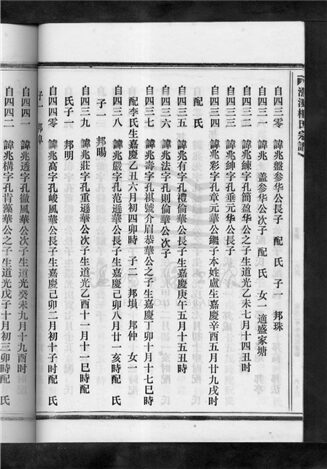 自四三零 諱兆盤參华公長子 配 氏 子一 邦珠
自四三一 諱兆 盖参华公次子 配 氏 女一 適盛家塘
自四三二 諱兆鍊字孔簡盈华公之子生道光乙未七月十四丑时
自四三三 諱兆鉮字孔垂元华公長子
自四三四 諱兆彩字孔章元華公鑭子本姓盧生嘉慶辛酉五月廿九戌时
配 氏
自四三五 諱兆有字孔禮倫華公長子生嘉慶庚午五月十五丑时
自四三六 諱兆法字孔則倫華公次子
自四三七 諱兆壽字孔祺號介眉恭華公之子生嘉慶丁卯十月十七巳时
配李氏生嘉慶乙丑六月初四卯時 子二 邦塤 邦仲 女一
自四三八 諱兆嚴字孔范遜華公長子生嘉慶己卯八月廿一亥時配
氏 子一 邦暘
自四三九 諱兆莊字孔重遜華公次子生道光乙酉十一月十一巳時配
氏 子一 邦明
自四四零 諱兆高字孔峻鳳華公長子生嘉慶己卯二月初十子时配 氏
子一
自四四一 諱兆透字孔徹鳳華公次子生道光癸未九月十九酉时
自四四二 諱兆構字孔肯鸞華公之子生道光戊子十月初三卯時配 氏